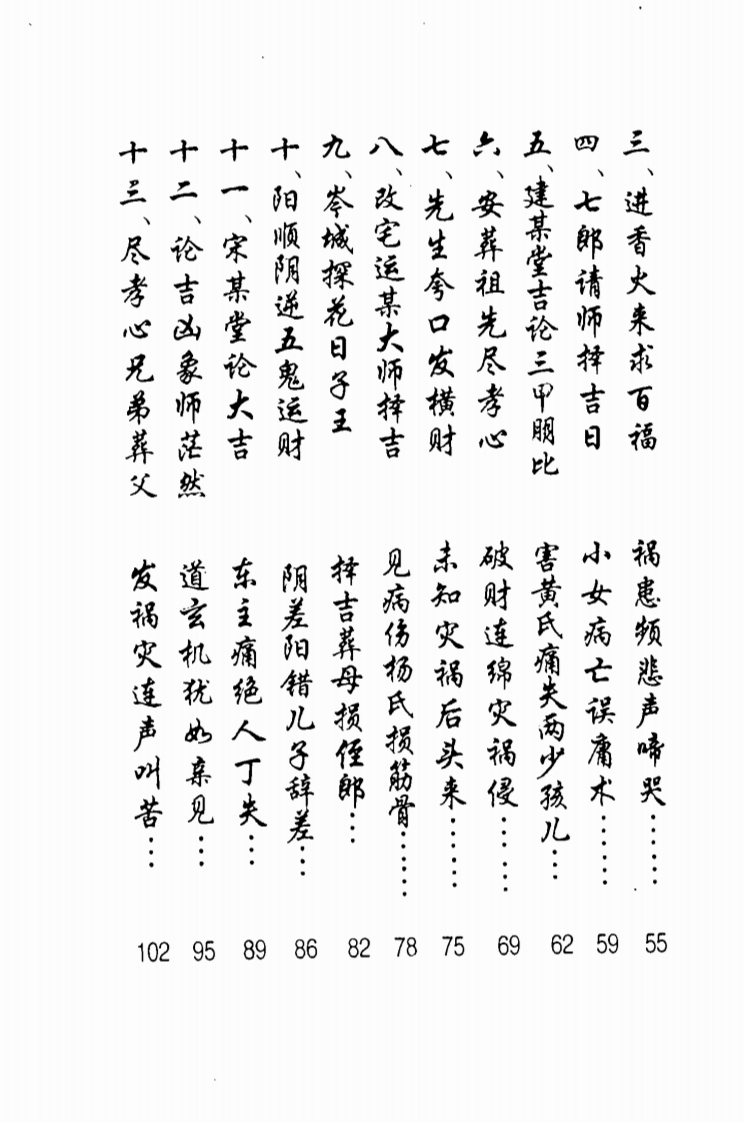 三、进香火来求百福 祸患频悲声啼哭…… 55
四、七郎请师择吉日 小女病亡误庸术…… 59
五、建某堂吉论三甲朋比 害黄氏痛失两少孩儿… 62
六、安葬祖先尽孝心 破财连绵灾祸侵…… 69
七、先生夸口发横财 未知灾祸后头来…… 75
八、改宅运某大师择吉 见病伤杨氏损筋骨…… 78
九、岑城探花日子王 择吉葬母损侄郎… 82
十、阳顺阴逆五鬼运财 阴差阳错儿子辞差… 86
十一、宋某堂论大吉 东主痛绝人丁失… 89
十二、论吉凶象师茫然 道玄机犹如亲见… 95
十三、尽孝心兄弟葬父 发祸灾连声叫苦… 102